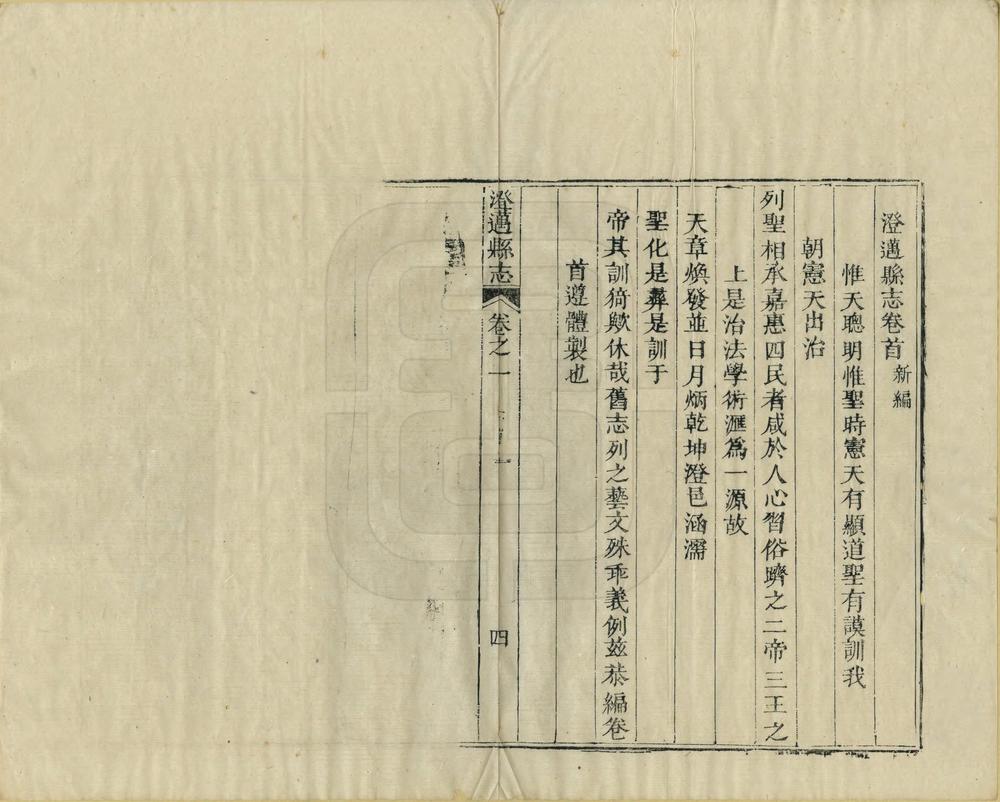 澄邁縣志卷首 新編
惟天聰明惟聖時憲天有顯道聖有謨訓我
朝憲天出治
列聖相承嘉惠四民者咸於人心習俗躋之二帝三王之
上是治法學術滙爲一源故
天章煥發並日月炳乾坤澄邑涵濡
聖化是彝是訓于
帝其訓猗歟休哉舊志列之藝文殊乖義例茲恭編卷
首遵體製也
澄邁縣志 卷之一 四